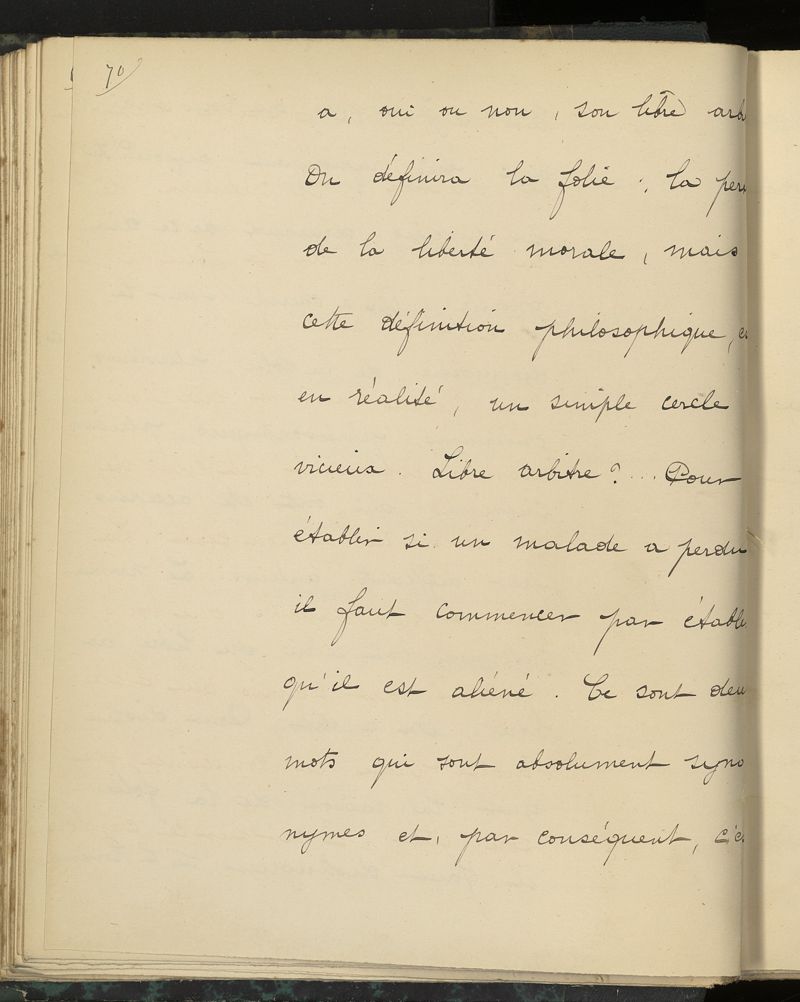 70
a, oui ou non, son libre arb
On définira la folie : la per
de la liberté morale, mais
cette définition philosophique,
en réalité, un simple cercle
vicieux. Libre arbitre ?... Pour
établir si un malade a perdu
il faut commencer par établ
qu'il est aliéné. Ce sont deu
mots qui sont absolument syno
nymes et, par conséquent, c'e